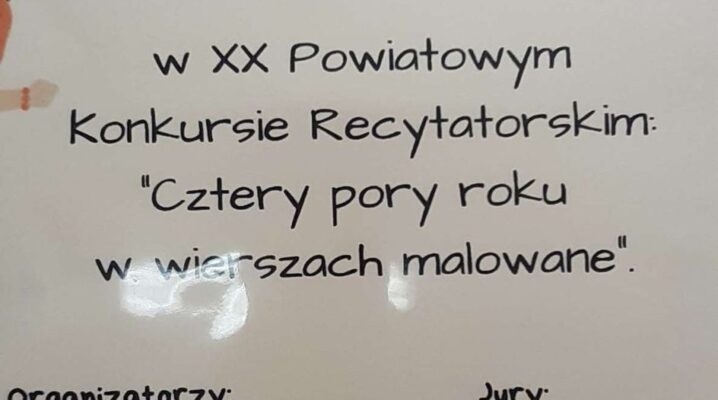 w XX Powiatowym
Konkursie Recytatorskim:
"Cztery pory roku
w wierszach malowane".
Organizatorzy: Jury: